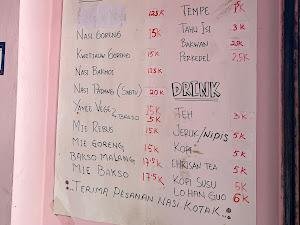 12.5K
NASI GORENG 15K
KWETIAUW GORENG 15K
NASI BAKMOI 12.5K
NASI PADANG (SABTU) 20K
YAMEE VEGE 15K
& BAKSO 5K
MIE REBUS 15K
MIE GORENG 15K
BAKSO MALANG 17.5K
MIE BAKSO 17.5K
TEMPE 1K
TAHU ISI 3K
BAKWAN 2K
PERKEDEL 2,5K
DRINK
TEH 3K
JERUK/NIPIS 5K
KOPI 5K
CHRISAN TEA 5K
KOPI SUSU 5K
LO HAN GUO 6K
..TERIMA PESANAN NASI KOTAK...